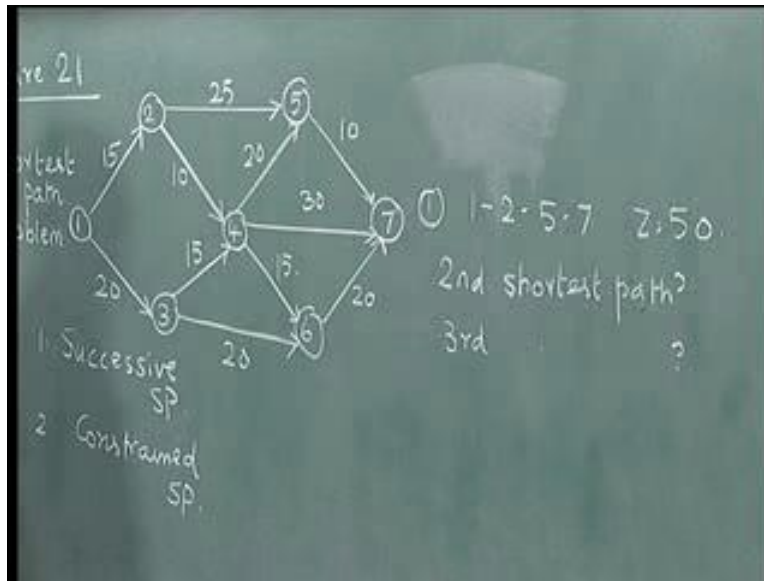 re 21
ortest
path
oblem
1
2
3
4
5
6
7
15
20
25
10
15
20
20
30
15.
10
20
① 1-2-5-7 Z=50.
2nd shortest path?
3rd " ?
1. Successive
SP.
2 Constrained
SP.